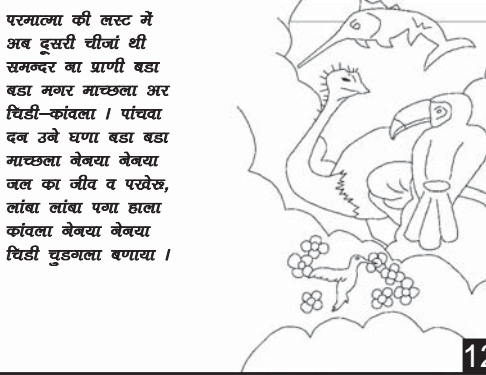 परमात्मा की लस्ट में
अब दूसरी चीजां थी
समन्दर ना प्राणी बडा
बडा मगर माच्छला अर
चिडी–कांवला । पांचवा
दन उने घणा बडा बडा
माच्छला नेनया नेनया
जल का जीव व पखेरू,
लांबा लांबा पगा हाला
कांवला नेनया नेनया
चिडी चुडगला बणाया ।